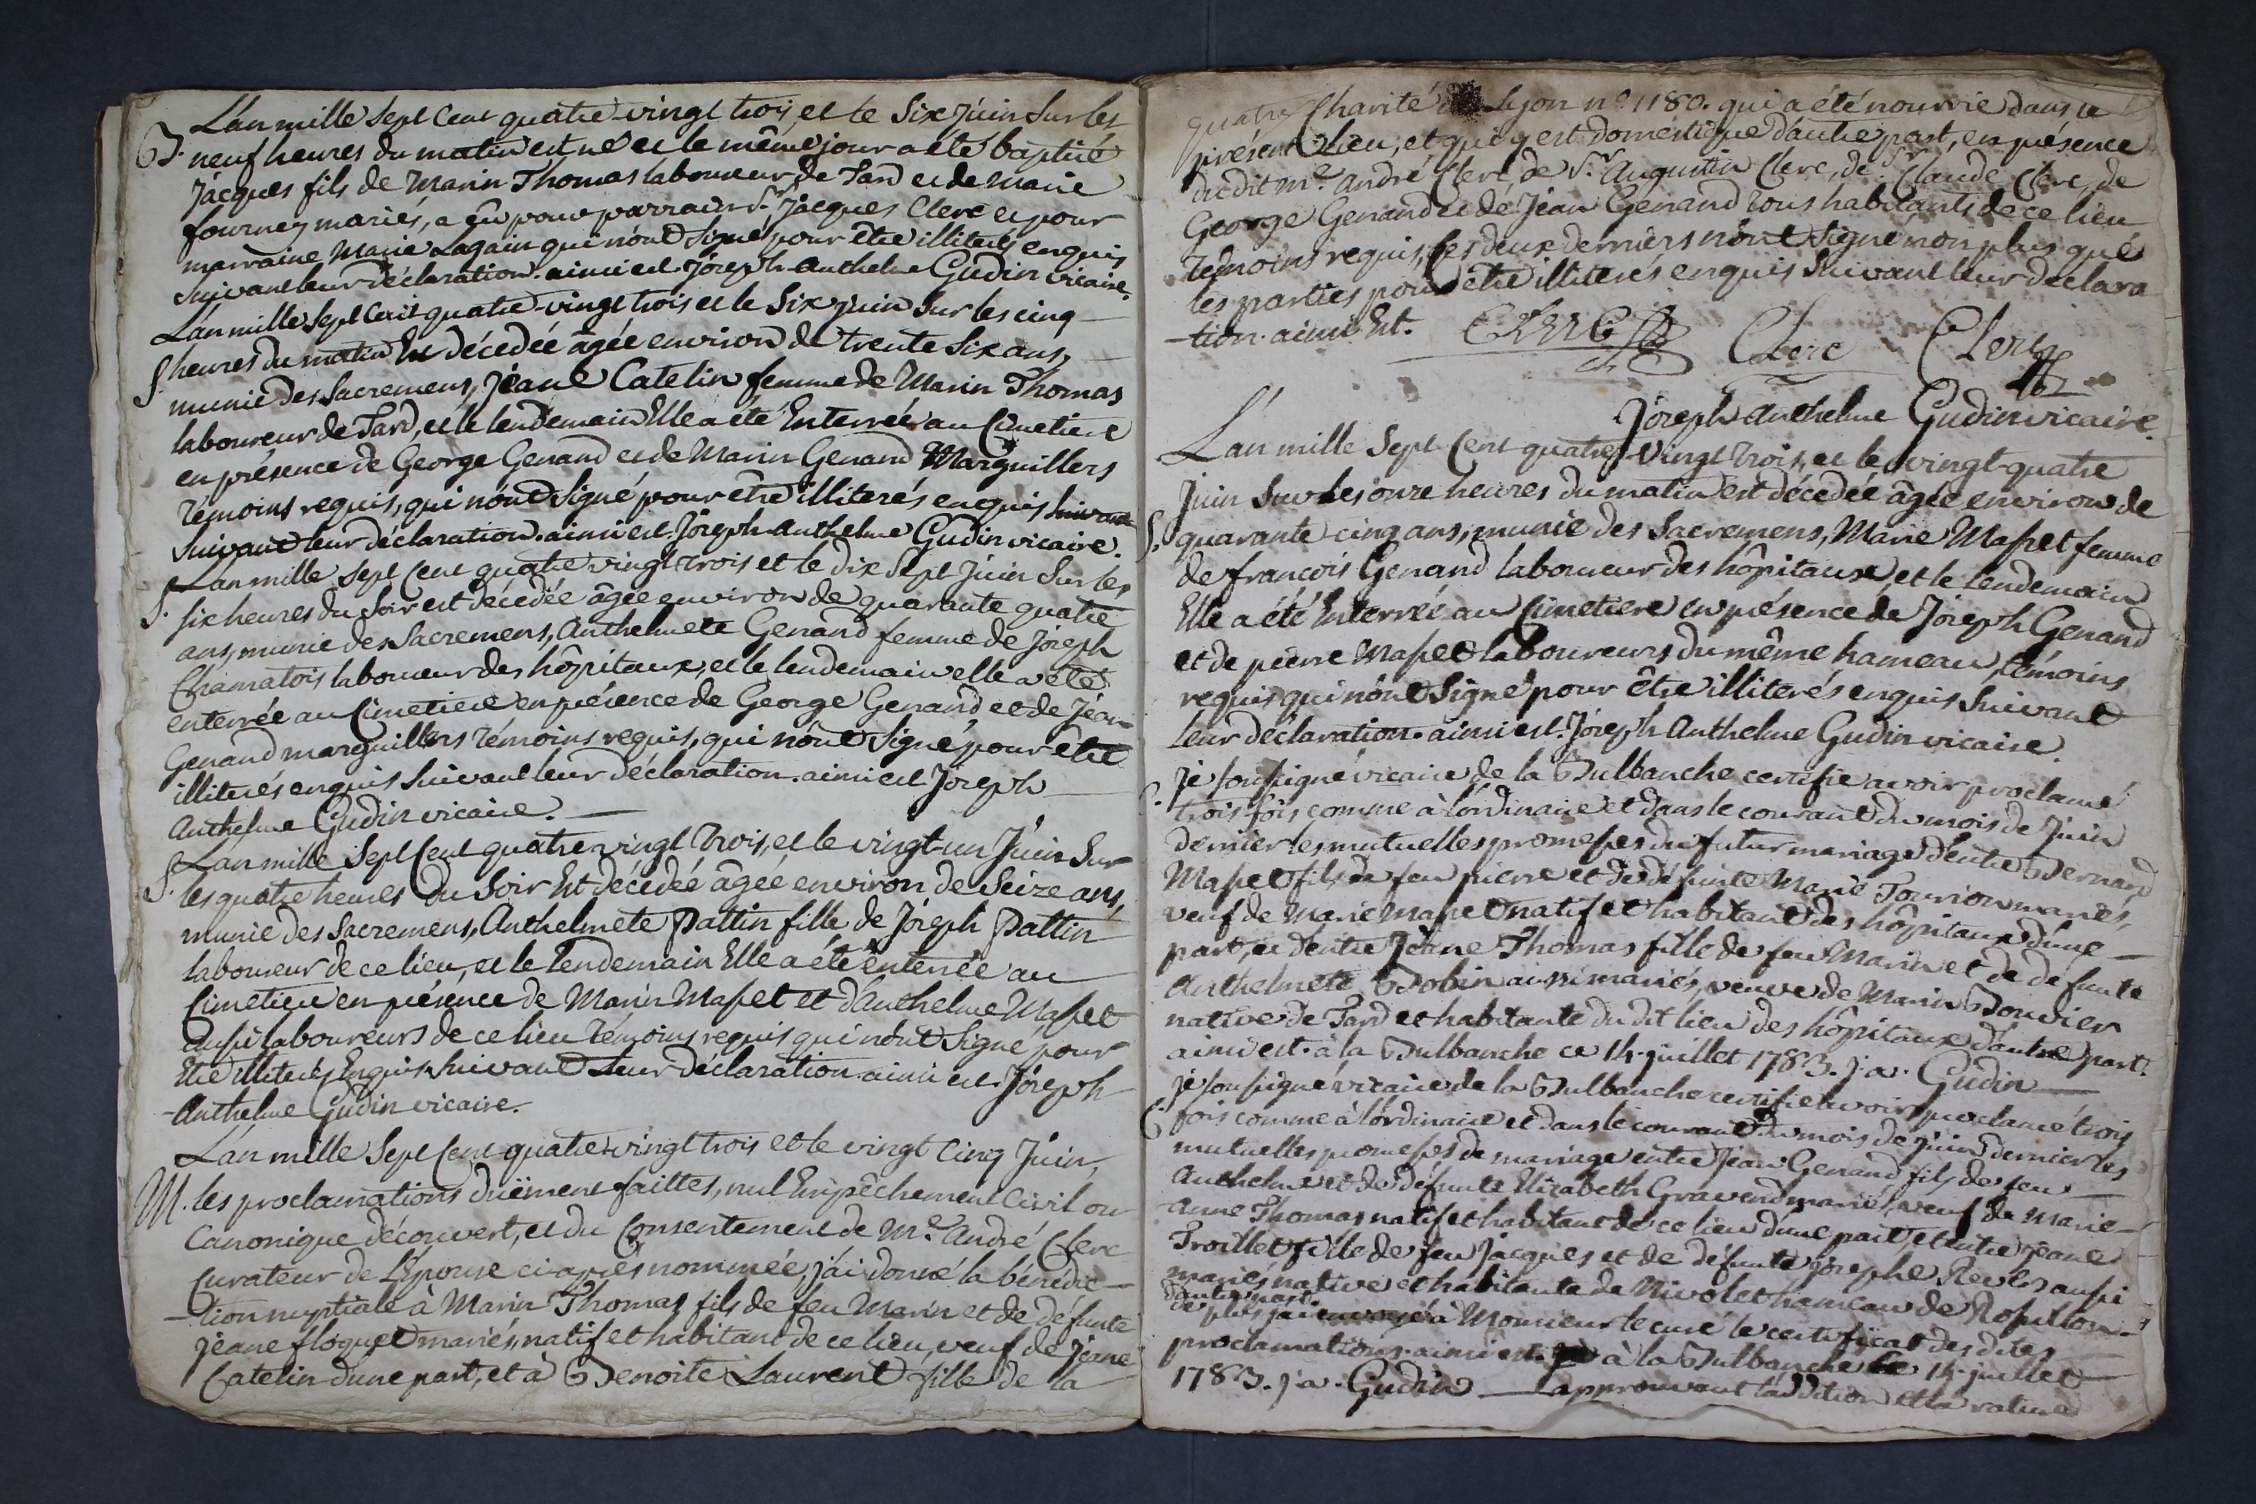 L'an mille Sept Cent quatre vingt trois, et le Six juin Sur les
B. neuf heures du matin est né et le même jour a été baptisé
Jacques fils de Marin Thomas laboureur de Tard et de Marie
fourney mariés, a êu pour parrain Sr. Jacques Clerc et pour
marraine Marie Lagain qui n'ont Signé pour être illiterés enquis
Suivant leur déclaration. ainsi est. Joseph Anthelme Gudin vicaire.
L'an mille Sept Cent quatre vingt trois et le Six juin Sur les cinq
S. heures du matin Est décédée âgée environ de trente Six ans,
munie des Sacremens, Jeane Catelin femme de Marin Thomas
laboureur de Tard, et le lendemain Elle a été Enterrée au Cimetiere
en présence de George Genand et de Marin Genand Marguillers
témoins requis, qui n'ont Signé pour être illiterés enquis Suivant
Suivant leur déclaration. ainsi est. Joseph Anthelme Gudin vicaire.
L'an mille Sept Cent quatre vingt trois et le dix Sept Juin Sur les
S. Six heures du Soir est décédée âgée environ de quarante quatre
ans, munie des Sacremens, Anthelmete Genand femme de Joseph
Chamatois laboureur des hôpitaux, et le lendemain elle a été
enterrée au Cimetiere en présence de George Genand et de Jean
Genand marguillers témoins requis, qui n'ont Signé pour être
illiterés enquis Suivant leur déclaration. ainsi est Joseph
Anthelme Gudin vicaire.
L'an mille Sept Cent quatre vingt trois, et le vingt-un Juin Sur
S. les quatre heures du Soir Est décédée âgée environ de Seize ans,
munie des Sacremens, Anthelmete Pattin fille de Joseph Pattin
laboureur de ce lieu, et le lendemain Elle a été enterrée au
Cimetiere en présence de Marin Masset et d'Anthelme Masset
aussi laboureurs de ce lieu témoins requis qui n'ont Signé pour
Etre illiterés Enquis Suivant leur déclaration ainsi est. Joseph
-Anthelme Gudin vicaire.
L'an mille Sept Cent quatre vingt trois et le vingt Cinq Juin,
M. les proclamations duëment faittes, nul Empêchement Civil ou
Canonique découvert, et du Consentement de Me. André Clerc
Curateur de L'Epouse ci après nommée, j'ai donné la bénédic-
-tion nuptiale à Marin Thomas fils de feu Marin et de défunte
Jeane floquet mariés, natif et habitant de ce lieu, veuf de Jeane
Catelin d'une part, et à Benoite Laurent fille de la
Charité de Lyon n°. 1180. qui a été nourrie dans le
présent Lieu, et qui y est domestique d'autre part, en présence
du dit Me. André Clerc de Sr. Augustin Clerc, de Sr. Claude Clerc, de
George Genand et de Jean Genand tous habitants de ce lieu
témoins requis, les deux derniers n'ont Signé non plus que
les parties pour être illiterés enquis Suivant leur déclara
-tion. ainsi Est. CLERC Clerc Clerc
Joseph Anthelme Gudin vicaire.
L'an mille Sept Cent quatre Vingt trois, et le vingt-quatre
Juin Sur les onze heures du matin est décédée âgée environ de
S. quarante cinq ans, munie des Sacremens, Marie Masset femme
de françois Genand laboureur des hôpitaux, et le lendemain
Elle a été Enterrée au Cimetiere en présence de Joseph Genand
et de pierre Masset laboureurs du même hameau, témoins
requis qui n'ont Signé pour être illiterés enquis Suivant
leur déclaration. ainsi est. Joseph Anthelme Gudin vicaire.
C. je Soussigné vicaire de la Bulbanche certifie avoir proclamé
trois fois comme à l'ordinaire et dans le courant du mois de Juin
dernier les mutuelles promesses du futur mariage d'entre Bernard
Masset fils de feu pierre et de défunte Marie Tourion mariés,
veuf de Marie Masset natif et habitant des hôpitaux d'une
part, et d'entre Jeane Thomas fille de feu Marin et de défunte
Anthelmete Bobin aussi mariés, veuve de Marin Bouvier
native de Tard et habitante du dit lieu des hôpitaux d'autre part.
ainsi est. à la Bulbanche ce 14. juillet 1783. j. a. Gudin
je Soussigné vicaire de la Bulbanche certifie avoir proclamé trois
C. fois comme à l'ordinaire et dans le courant du mois de juin dernier les
mutuelles promesses de mariage entre Jean Genand fils de feu
Anthelme et de défunte Elizabeth Gravend mariés, veuf de Marie-
Anne Thomas natif et habitant de ce lieu d'une part, et entre Jeane
Troillet fille de feu Jacques et de défunte Josephe Revel aussi
mariés native et habitante de Nivolet hameau de Rossillon
d'autre part.
de plus j'ai envoyé à Monsieur le curé le certificat des dites
proclamations. ainsi est. à la Bulbanche le 14. juillet
1783. j. a. Gudin approuvant l'addition et la rature